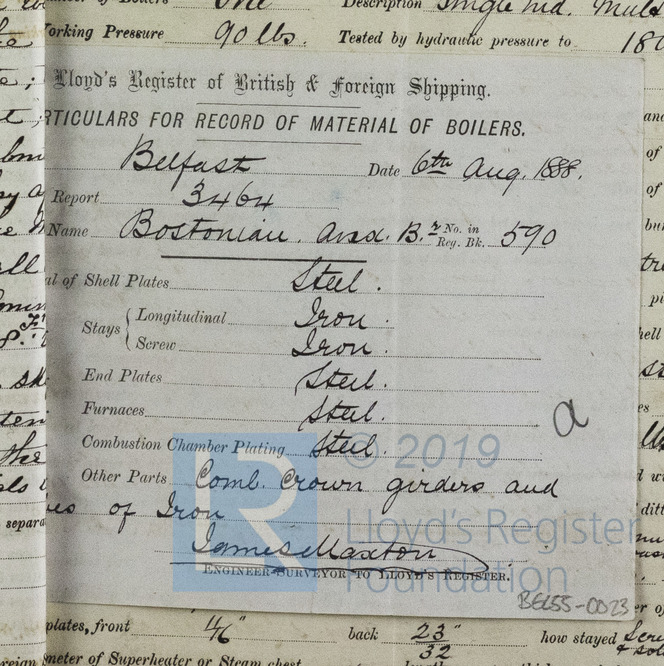 of Boilers One Description Single End. Mult
Working Pressure 90 lbs. Tested by hydraulic pressure to 180
Lloyd's Register of British & Foreign Shipping.
RTICULARS FOR RECORD OF MATERIAL OF BOILERS.
Belfast Date 6th Aug. 1888.
Report 3464
Name Bostonian. Aux. B.r No. in Reg. Bk. 590
al of Shell Plates Steel.
Stays { Longitudinal Iron.
Screw Iron.
End Plates Steel.
Furnaces Steel.
a
Combustion Chamber Plating Steel.
Other Parts Comb. Crown girders and
es of Iron
James Maxton
ENGINEER-SURVEYOR TO LLOYD'S REGISTER.
© 2019
Lloyd's Register
Foundation
BEL55-0023
plates, front back 23/32" how stayed
meter of Superheater or Steam chest